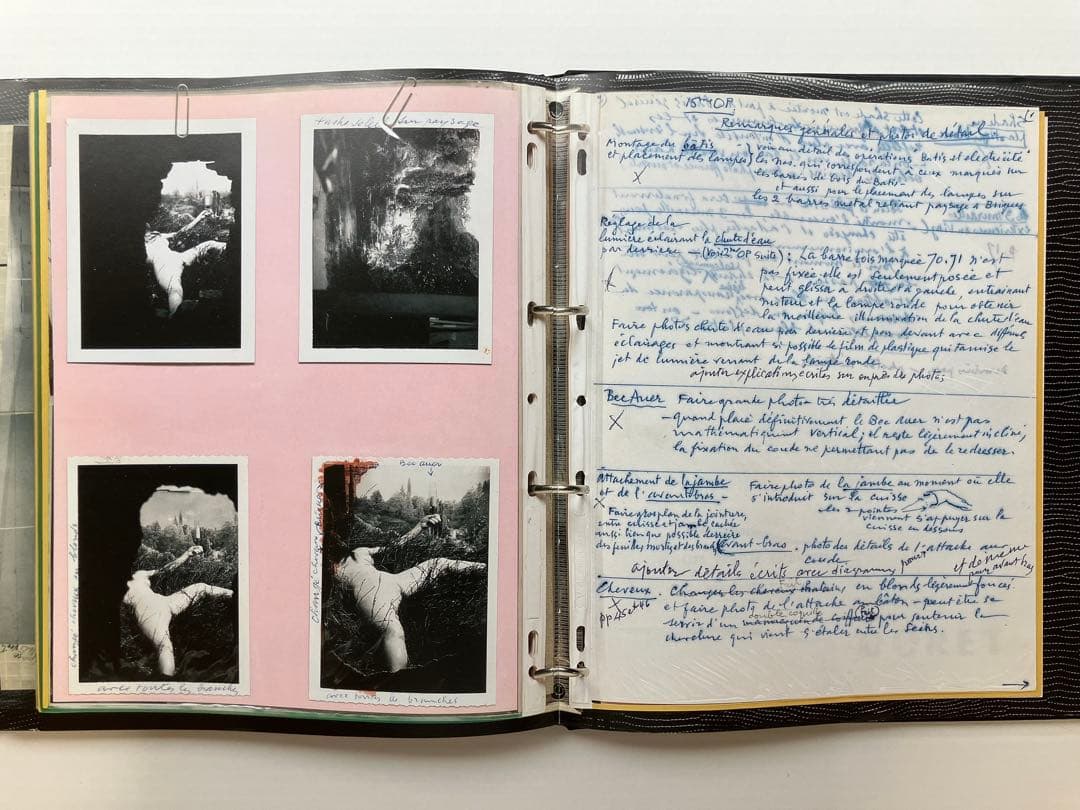 Tache soleil sur paysage
changé cheveux en blonds
avec toutes les branches
Bec Auer
changé cheveux
avec toutes les branches
15e OP
Remarques générales et photos de détail
Montage du bâtis
et placement des lampes
voir au détail des operations Batis et electricité
les nos. qui correspondent à ceux marqués sur
les barres de bois du Batis -
et aussi pour le placement des lampes sur
les 2 barres metal reliant paysage à Briques
X
Réglage de la
lumière éclairant la chute d'eau
par derrière — (Voir 2me OP suite) : La barre bois marquée 70.71 n'est
pas fixée elle est seulement posée et
peut glisser à droite et à gauche, entrainant
moteur et la lampe ronde pour obtenir
la meilleure illumination de la chute d'eau
Faire photos chute d'eau par derrière et par devant avec différents
éclairages et montrant si possible le film de plastique qui tamise le
jet de lumière venant de la lampe ronde
ajouter explications écrites sur ou près des photos
Bec Auer Faire grande photo très détaillée
X
— quand placé définitivement le Bec Auer n'est pas
mathématiquement vertical ; il reste légèrement incliné,
la fixation du coude ne permettant pas de le redresser.
Attachement de la jambe
et de l'avant bras
X
Faire photo de la jambe au moment où elle
s'introduit sur la cuisse
les 2 pointes
viennent s'appuyer sur la
cuisse en dessous
Faire gros plan de la jointure,
entre cuisse et jambe cachée
aussi bien que possible derrière
des feuilles mortes et des brindilles
Avant-bras . photo des détails de l'attache au
coude
ajouter détails écrits avec diagrammes pour
et de même
pour avant bras
Cheveux. Changer les cheveux chatains, en blonds légèrement foncés
X
pp 45 et 46
et faire photo de l'attache au bâton - peut être se
servir d'un pour soutenir la
double coquille
chevelure qui vient s'étaler entre les seins.
→